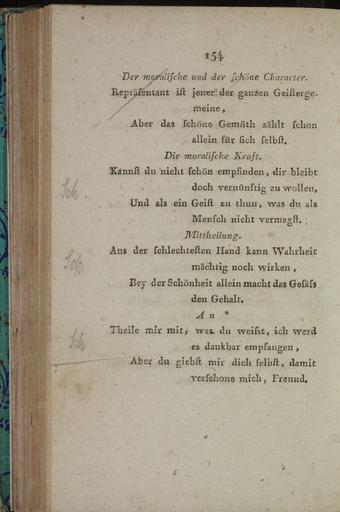 154
Der moraliſche und der ſchöne Character.
Repräſentant iſt jener der ganzen Geiſterge-
meine,
Aber das ſchöne Gemüth zählt ſchon
allein für ſich ſelbſt.
Die moraliſche Kraft.
Kannſt du nicht ſchön empfinden, dir bleibt
doch vernünftig zu wollen,
Sch.
Und als ein Geiſt zu thun, was du als
Menſch nicht vermagſt.
Mittheilung.
Aus der ſchlechteſten Hand kann Wahrheit
Sch
mächtig noch wirken,
Bey der Schönheit allein macht das Gefäſs
den Gehalt.
An *
Theile mir mit, was du weiſst, ich werd
Sch
es dankbar empfangen,
Aber du giebſt mir dich ſelbſt, damit
verſchone mich, Freund.